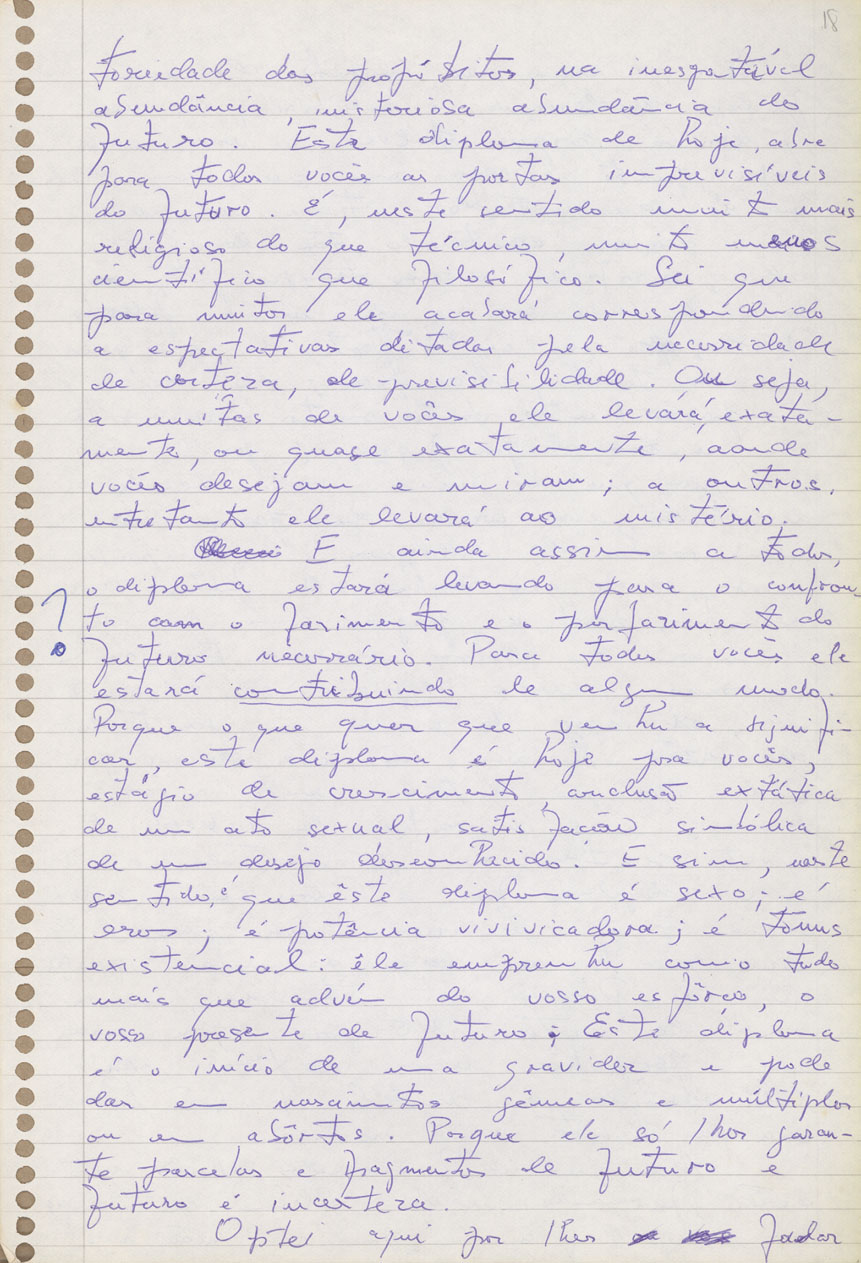 18
toriedade dos propósitos, na inesgotável
abundância, misteriosa abundância do
futuro. Este diploma de hoje, abre
para todos vocês as portas imprevisíveis
do futuro. É, neste sentido muito mais
religioso do que técnico, muito menos
científico que filosófico. Sei que
para muitos ele acabará correspondendo
a espectativas ditadas pela necessidade
de certeza, de previsibilidade. Ou seja,
a muitos de vocês ele levará, exata-
mente, ou quase exatamente, aonde
vocês desejam e miram; a outros,
entretanto ele levará ao mistério.
E ainda assim a todos,
o diploma estará levando para o confron-
? to com o e o do
futuro necessário. Para todos vocês ele
estará contribuindo de algum modo.
Porque o que quer que venha a signifi-
car, este diploma é hoje pra vocês,
estágio de crescimento, conclusão extática
de um ato sexual, satisfação simbólica
de um desejo desconhecido. E sim, neste
sentido, é que êste diploma é sexo; é
eros; é potência vivivicadora; é tônus
existencial: êle emprenha como tudo
mais que advém do vosso esfôrço, o
vosso presente de futuro; Este diploma
é o início de uma gravidez e pode
dar em nascimentos gêmeos e múltiplos
ou em abôrtos. Porque ele só lhes garan-
te parcelas e fragmentos de futuro e
futuro é incerteza.
Optei aqui por lhes